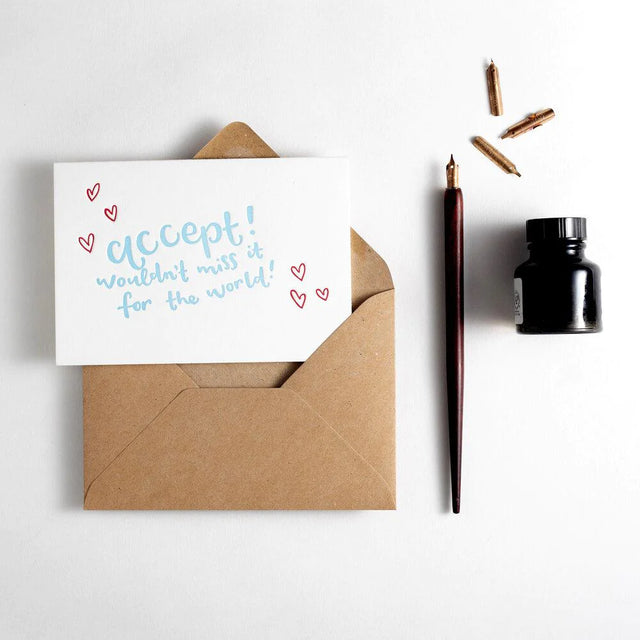 accept!
wouldn't miss it
for the world!